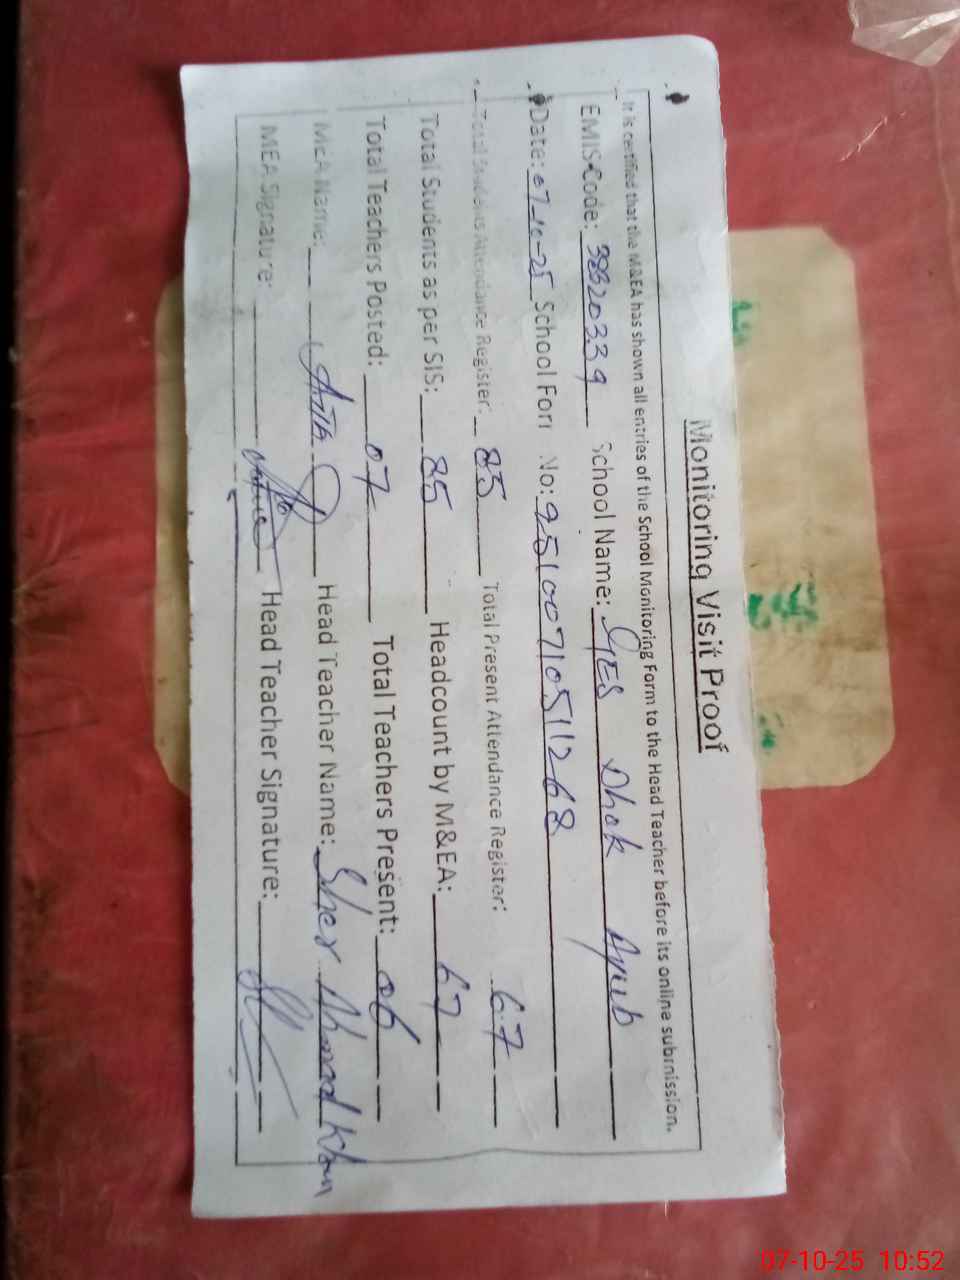 Monitoring Visit Proof
It is certified that the M&EA has shown all entries of the School Monitoring Form to the Head Teacher before its online submission.
EMIS Code: 38620339 School Name: GES Dhok Ayub
Date: 07-10-25 School Form No: 9251007105111268
Total Students Attendance Register: 85 Total Present Attendance Register: 67
Total Students as per SIS: 85 Headcount by M&EA: 67
Total Teachers Posted: 07 Total Teachers Present: 06
MEA Name: Head Teacher Name: Sher Ahmad Khan
MEA Signature: Head Teacher Signature:
07-10-25 10:52